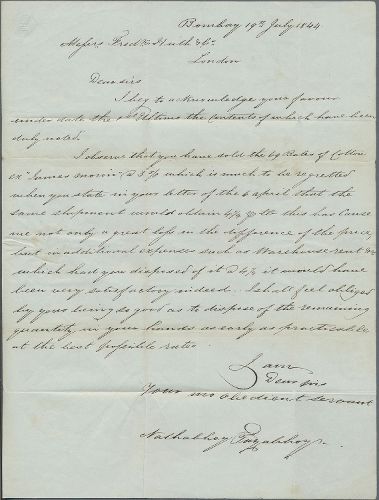 Bombay 19th July 1844
Messrs Fredk Huth & Co.
London
Dear sirs
I beg to acknowledge your favour
under date the 1st Ultimo the contents of which have been
duly noted.
I observe that you have sold the 69 Bales of Cotton
ex "James
which is much to be regretted
when you state in your letter of the 6 april that the
same shipment would obtain 4⅛ this has cause
me not only a great loss in the difference of the price,
but in additional expenses such as Warehouse rent &c
which had you disposed of it @ 4⅛ it would have
been very satisfactory indeed. I shall feel obliged
by your being so good as to dispose of the remaining
quantity, in your hands as early as practicable
at the best possible rates.
I am
Dear sirs
Your mo obedient servant
Nathabhoy